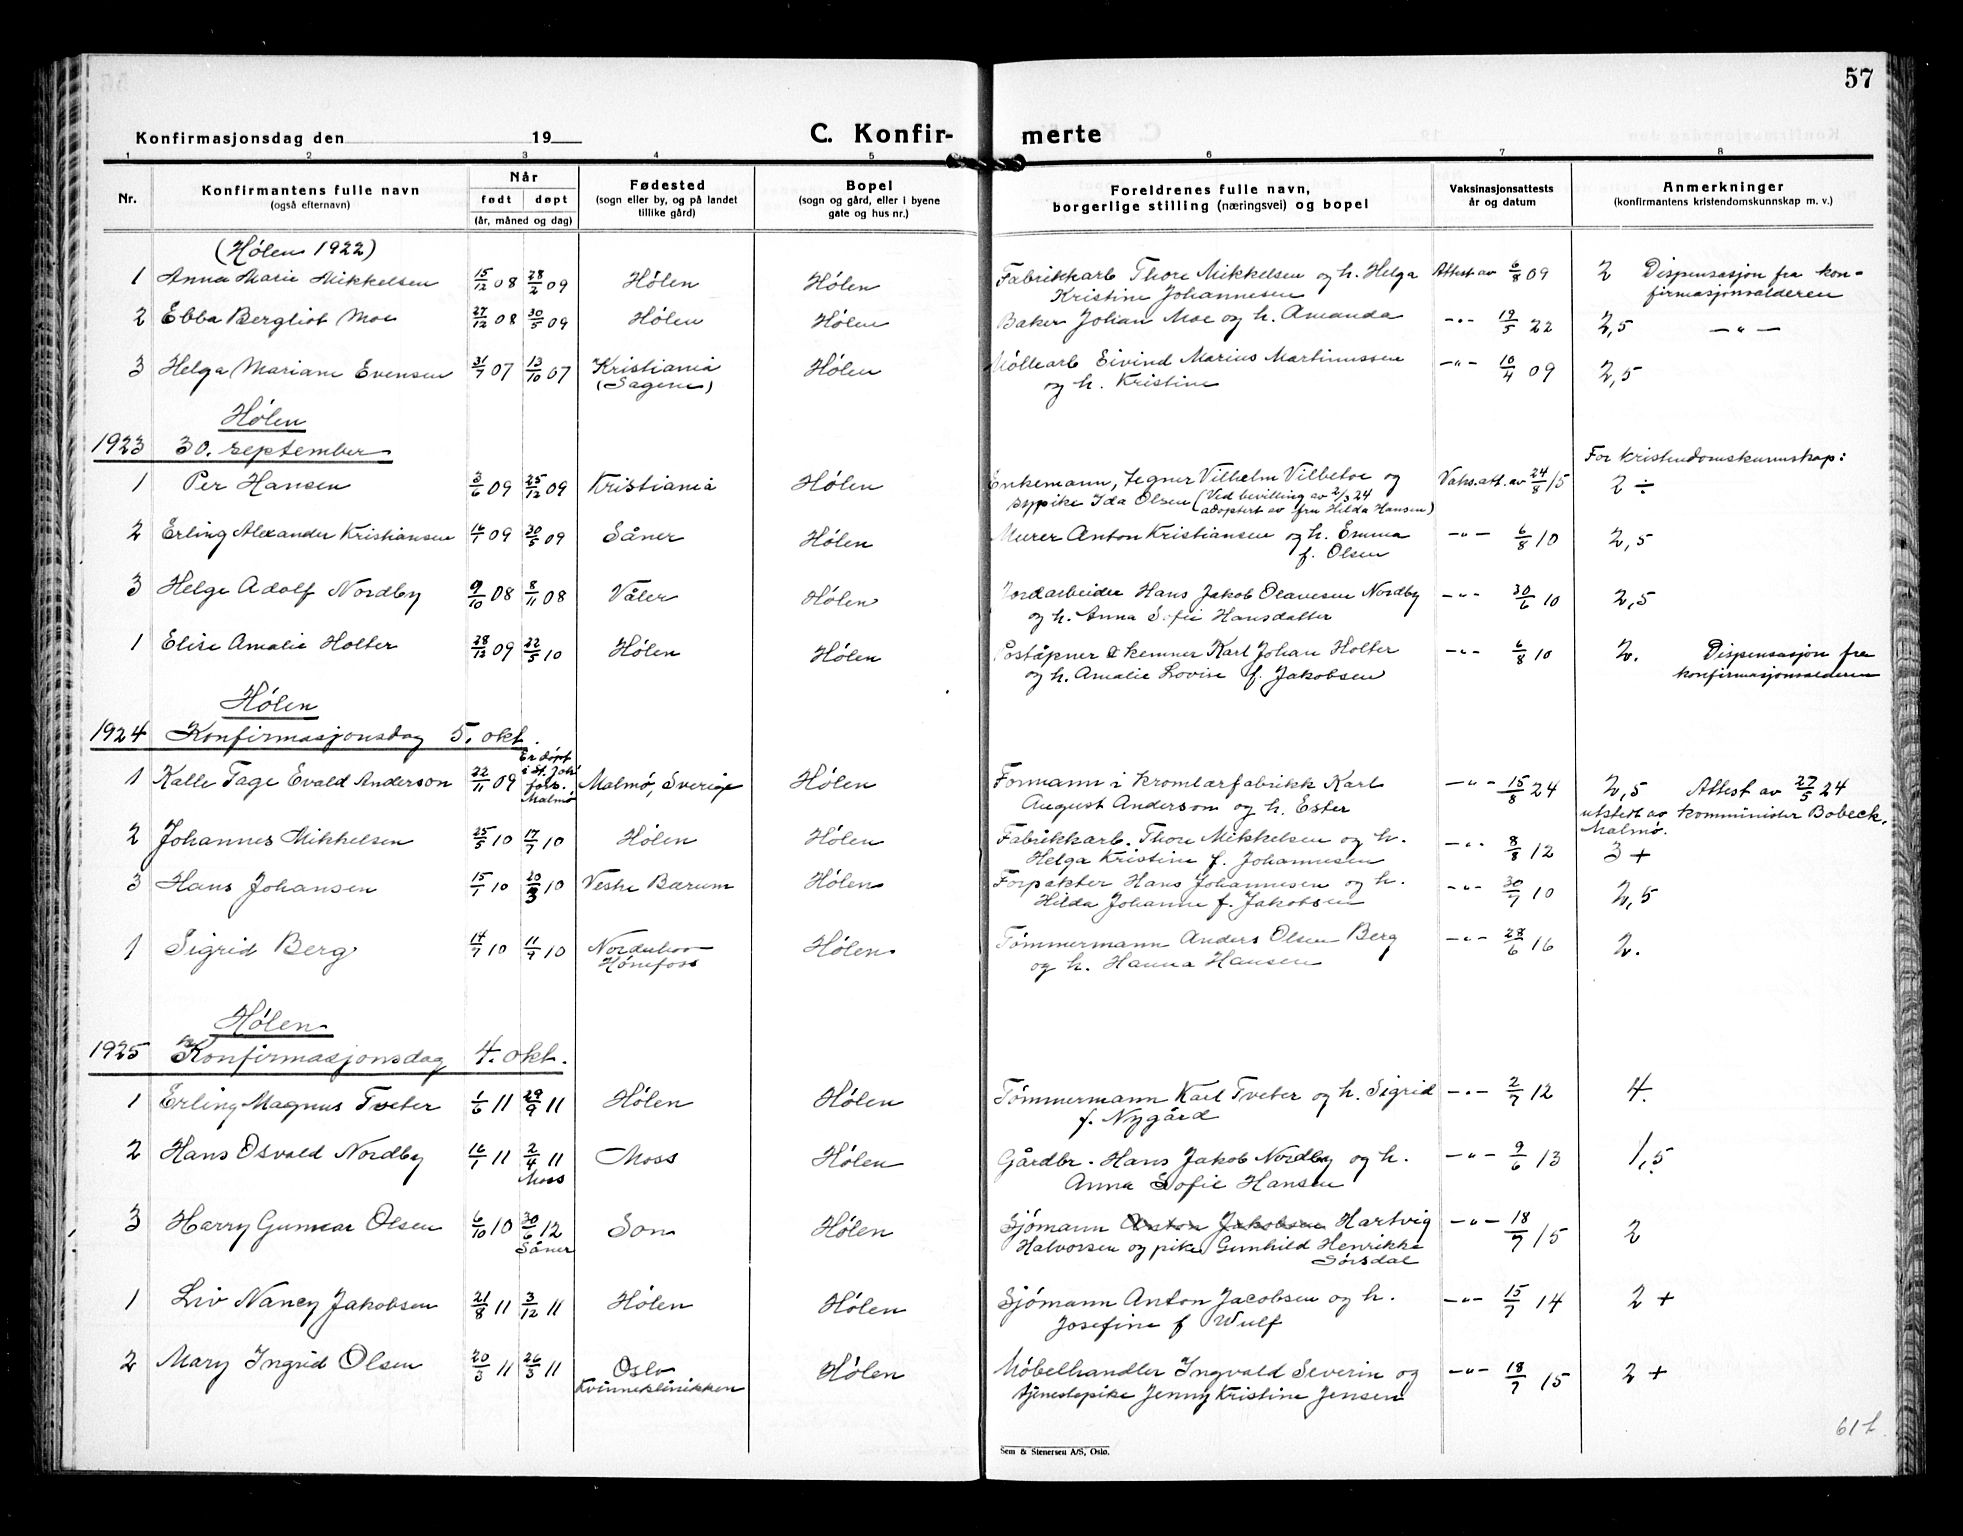 57
Konfirmasjonsdag den 19
C. Konfir- merte
1 2 3 4 5 6 7 8
Nr.
Konfirmantens fulle navn
(også efternavn)
Når
født døpt
(år, måned og dag)
Fødested
(sogn eller by, og på landet
tillike gård)
Bopel
(sogn og gård, eller i byene
gate og hus nr.)
Foreldrenes fulle navn,
borgerlige stilling (næringsvei) og bopel
Vaksinasjonsattests
år og datum
Anmerkninger
(konfirmantens kristendomskunnskap m. v.)
(Hølen 1922)
1 Anna Marie Mikkelsen 15/12 08 28/2 09 Hølen Hølen Fabrikkarb Thore Mikkelsen og h. Helga Attest av 6/8 09 2 Dispensasjon fra kon-
Kristine Johannesen firmasjonsalderen
2 Ebba Bergliot Moe 27/12 08 30/5 09 Hølen Hølen Baker Johan Moe og h. Amanda -"- 19/5 22 2,5 -"-
3 Helga Mariane Evensen 31/7 07 13/10 07 Kristiania Hølen Møllearb Eivind Marius Martinussen -"- 10/4 09 2,5
(Sagene) og h. Kristine
Hølen
1923 30. september
For kristendomskunnskap:
1 Per Hansen 3/6 09 25/12 09 Kristiania Hølen Enkemann, tegner Vilhelm Vilbetoe og Vaks.att. av 24/8 15 2 ÷
sypike Ida Olsen (Ved bevilling av 2/3 24
adoptert av fru Hilda Hansen)
2 Erling Alexander Kristiansen 16/1 09 30/5 09 Såner Hølen Murer Anton Kristiansen og h. Emma -"- 6/8 10 2,5
f. Olsen
3 Helge Adolf Nordby 9/10 08 8/11 08 Våler Hølen Jordarbeider Hans Jakob Olavesen Nordby -"- 30/6 10 2,5
og h. Anna Sofie Hansdatter
1 Elise Amalie Holter 28/12 09 22/5 10 Hølen Hølen Poståpner & kemner Karl Johan Holter -"- 6/8 10 2. Dispensasjon fra
og h. Amalie Lovise f. Jakobsen konfirmasjonsalderen
Hølen
1924 Konfirmasjonsdag 5. okt.
1 Kalle Tage Evald Anderson 22/11 09 Er døpt
i St. Joh.
fors.
Malmø Malmø, Sverige Hølen Formann i kromlærfabrikk Karl -"- 15/8 24 2,5 Attest av 27/5 24
August Anderson og h. Ester utstedt av komminister Bobeck,
Malmø.
2 Johannes Mikkelsen 25/5 10 17/7 10 Hølen Hølen Fabrikkarb. Thore Mikkelsen og h. -"- 8/8 12 3 +
Helga Kristine f. Johannesen
3 Hans Johansen 15/1 10 20/3 10 Vestre Bærum Hølen Forpakter Hans Johannesen og h. -"- 30/7 10 2,5
Hilda Johanne f. Jakobsen
1 Sigrid Berg 14/7 10 11/9 10 Norderhov Hølen Tømmermann Anders Olsen Berg -"- 28/6 16 2.
Hønefoss og h. Hanna Hansen
Hølen
1925 Konfirmasjonsdag 4. okt.
1 Erling Magnus Tveter 1/6 11 29/9 11 Hølen Hølen Tømmermann Karl Tveter og h. Sigrid -"- 2/7 12 4.
f. Nygård
2 Hans Osvald Nordby 16/1 11 2/4 11 Moss Hølen Gårdbr. Hans Jakob Nordby og h. -"- 9/6 13 1,5
Moss Anna Sofie Hansen
3 Harry Gunnar Olsen 6/10 10 30/6 12 Son Hølen Sjømann Anton Jakobsen Hartvig -"- 18/7 15 2
Såner Halvorsen og pike Gunhild Henrikke
Sørsdal
1 Liv Nancy Jakobsen 21/8 11 3/12 11 Hølen Hølen Sjømann Anton Jacobsen og h. -"- 15/7 14 2 +
Josefine f Wulf
2 Mary Ingrid Olsen 20/3 11 26/3 11 Oslo Hølen Møbelhandler Ingvald Severin og -"- 18/7 15 2 +
Kvinneklinikken tjenestepike Jenny Kristine Jensen
Sem & Stenersen A/S, Oslo.